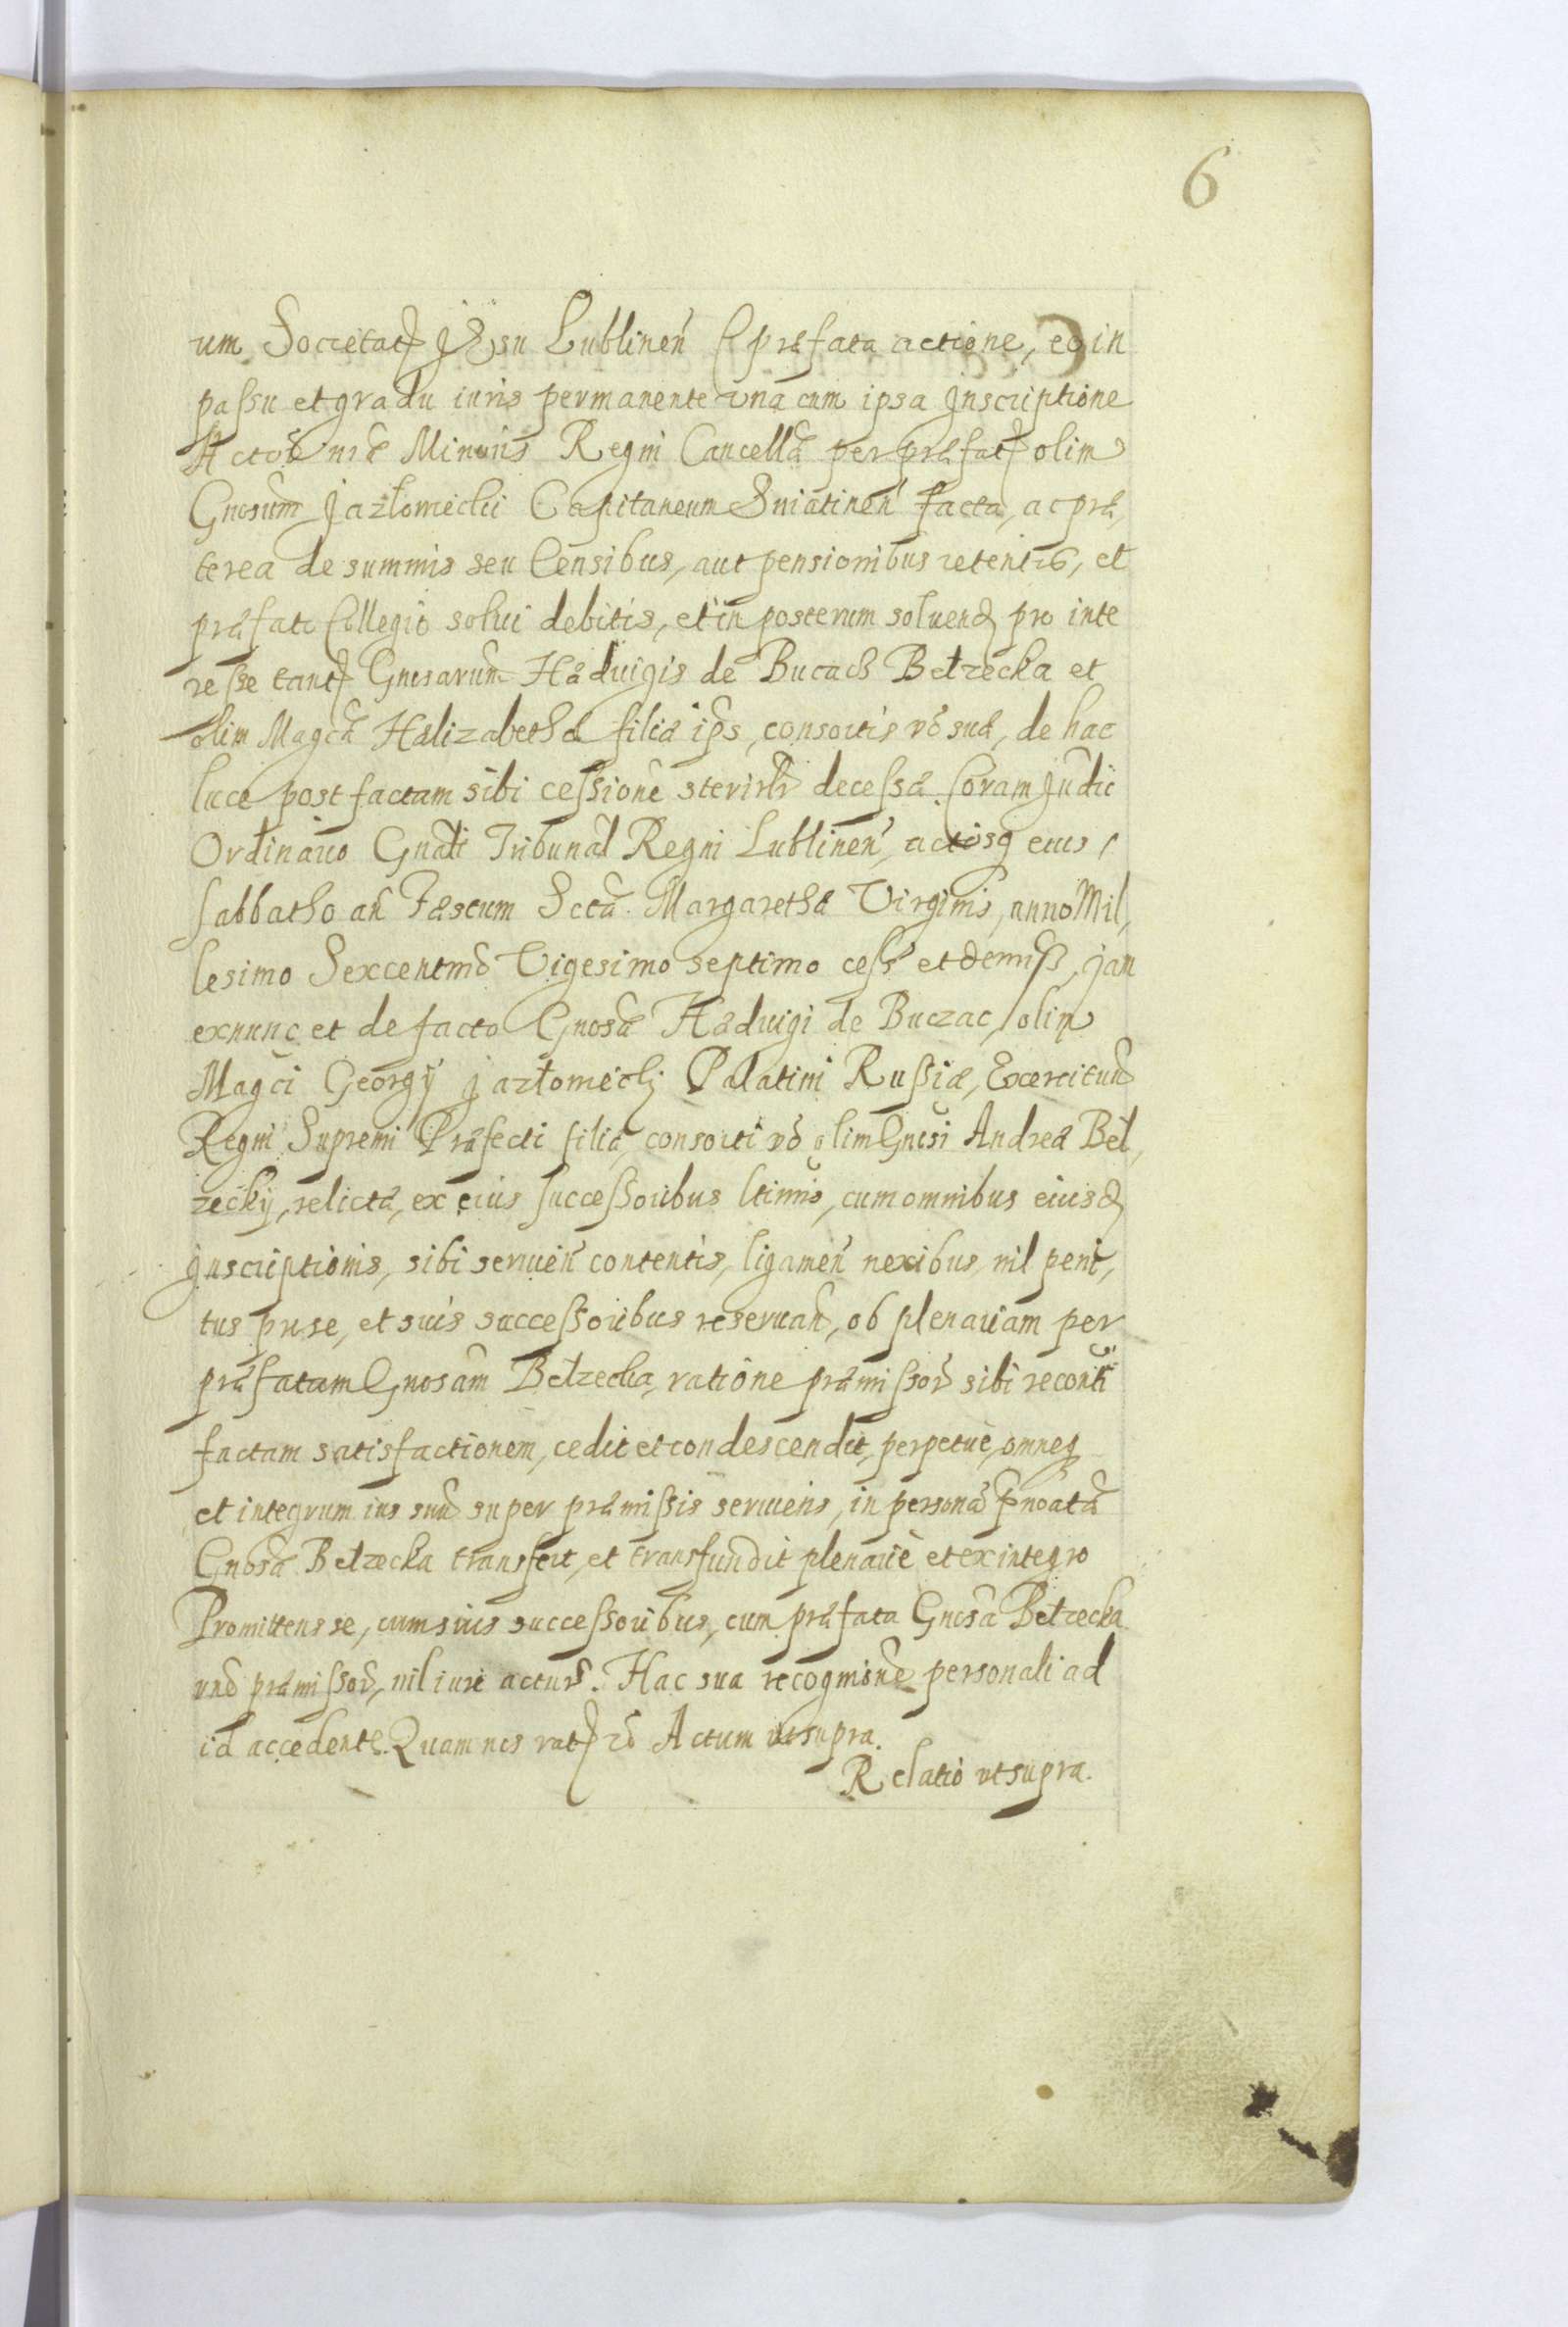 6
um Societat Jesu Lublinen præfata actione, eo in
passu et gradu iuris permanente una cum ipsa Inscriptione
Actor nræ Minoris Regni Cancella per præfat olim
Gnosum Jazłowiecki Capitaneum Sniatinen facta, ac præ,
terea de summis seu Censibus, aut pensionibus retentis, et
præfato Collegio solui debitis, et in posterum soluend pro inte
resse tant Gnosarum Hæduigis de Bucach Bełzecka et
olim Magcæ Hælizabethæ filiæ ips, consortis vo suæ, de hac
luce post factam sibi cessione steriltr decessæ. Coram Judic
Ordinario Gnali Tribunal Regni Lublinen, actisq eius
Sabbatho an Fæstum Sctæ Margarethæ Virginis, anno Mil,
lesimo Sexcentmo Vigesimo septimo cess et demiss, jam
exnunc et de facto Gnosæ Hæduigi de Buczac, olim
Magci Georgÿ Jazłowiecki Palatini Russiæ, Exercituu
Regni Supremi Præfecti filiæ, consorti vo olim Gnosi Andreæ Beł,
zeckÿ, relictæ, ex eius successoribus ltimis, cum omnibus eiusd
Inscriptionis, sibi seruien contentis, ligamen nexibus, nil peni,
tus pro se, et suis successoribus reseruan, ob plenariam per
præfatam Gnosam Bełzecka, ratione præmissor sibi reconti
factam satisfactionem, cedit et condescendit, perpetuè, omneq
et integrum ius suu super præmissis seruiens, in persona pnoatæ
Gnosæ Bełzecka transfert, et transfundit plenariè et ex integro
Promittens se, cum suis successoribus, cum præfata Gnosa Bełzecka
præmissor, nil iure actur. Hac sua recognione personali ad
id accedente. Quam nos rat Actum ut supra.
Relatio ut supra.